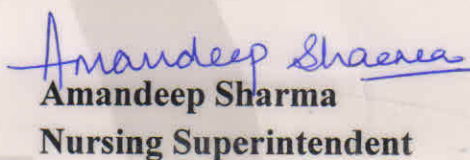 Amandeep Sharma
Amandeep Sharma
Nursing Superintendent